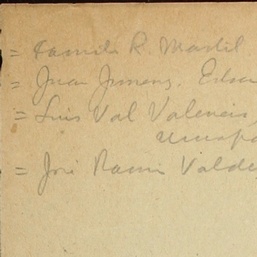 = Familia R. Mastil
= Juan Jimenz. Edua
= Luis Val Valencia,
= José Rami Valde